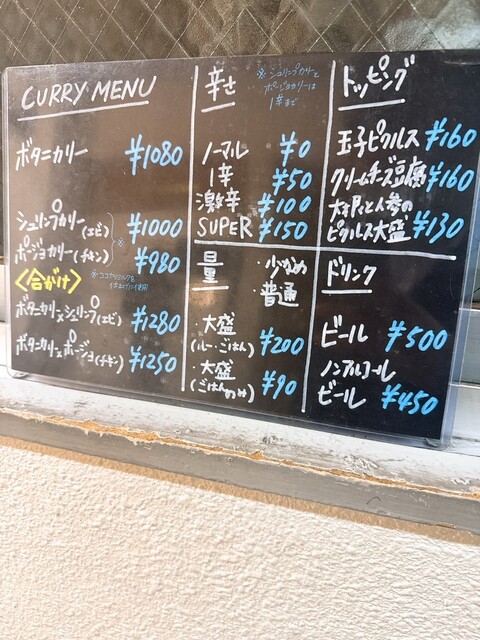 CURRY MENU
ボタニカリー ¥1080
シュリンプカリー(エビ) ¥1000
ポージョカリー(チキン) ¥980
※ココナッツミルクを
仕上げに使用
〈合がけ〉
ボタニカリ×シュリンプ(エビ) ¥1280
ボタニカリ×ポージョ(チキン) ¥1250
辛さ
※シュリンプカリーと
ポージョカリーは
1辛まで
ノーマル ¥0
1辛 ¥50
激辛 ¥100
SUPER ¥150
量
・少なめ
・普通
・大盛
(ルー・ごはん) ¥200
・大盛
(ごはんのみ) ¥90
トッピング
玉子ピクルス ¥160
クリームチーズ豆腐 ¥160
大根と人参の
ピクルス大盛 ¥130
ドリンク
ビール ¥500
ノンアルコール
ビール ¥450